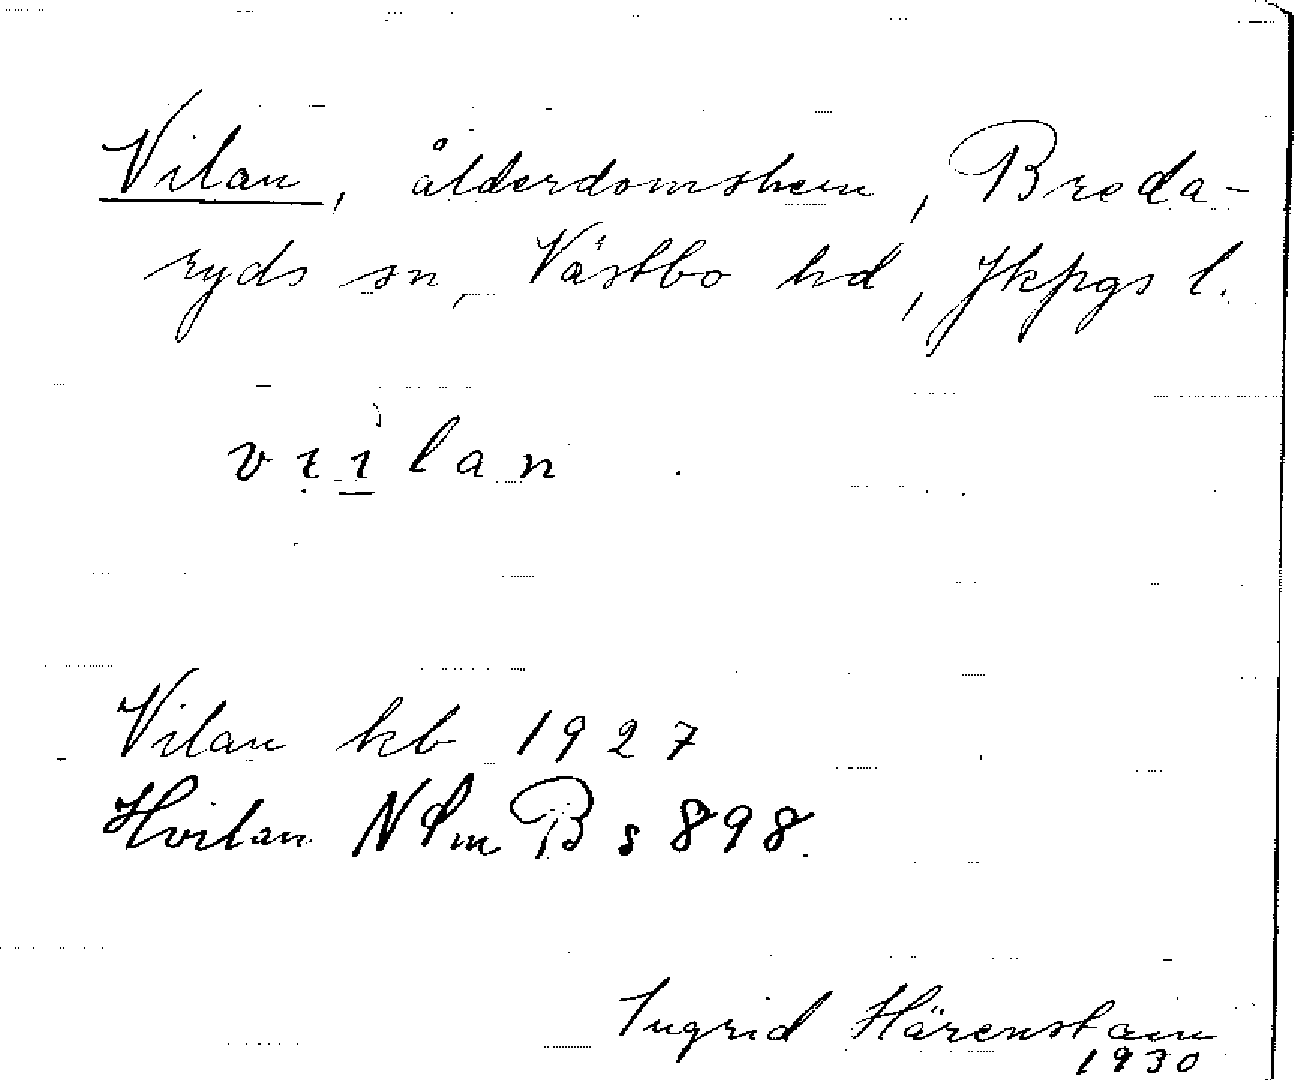 Vilan, ålderdomshem, Breda-
ryds sn, Västbo hd, Jkpgs l.
vịi̠lan
Vilan kb 1927
Hvilan N Sm B s 898.
Ingrid Härenstam
1930